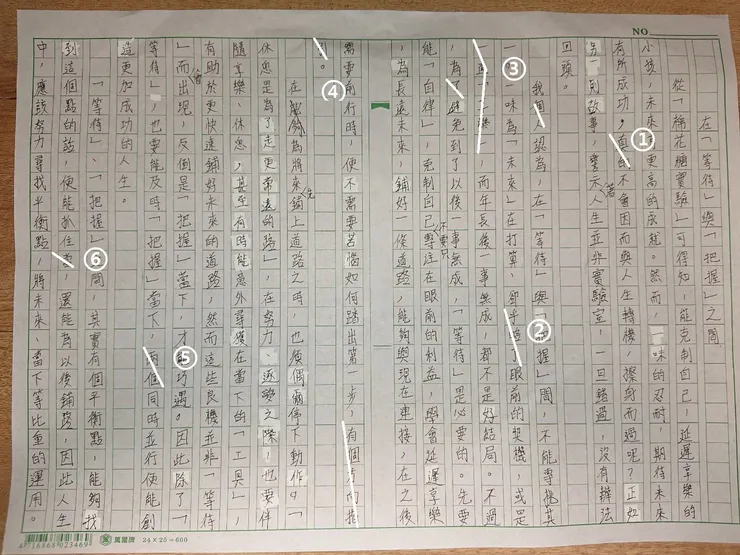 NO.
在「等待」與「把握」之間
從「棉花糖實驗」可得知，能克制自己，延遲享樂的
小孩，未來更高的成就。然而，一味的忍耐，期待未來
有所成功，真的不會因而與人生轉機，擦身而過呢？正如
另一則故事，警示人生並非實驗室，一旦錯過，沒有辦法
著
回頭。
我個人認為，在「等待」與「把握」間，不能專執其
一，一味為「未來」在打算，卻失眼前的契機，或是
，而年長後一事無成，都不是好結局。不過
，為避免到了以後一事無成，「等待」是必要的。先要
能「自律」，克制自己專注在眼前的利益，學會延遲享樂
不要只
，為長遠未來，鋪好一條道路，能夠與現在連接，在之後
需要前行時，便不需要苦惱如何踏出第一步，有個方向指
引。
在能夠為將來鋪上道路之時，也須偶爾停下動作。「
先
休息是為了走更常遠的路」，在努力、逐夢之際，也要伴
隨享樂、休息，甚至有時能意外尋獲在當下的「工具」，
有助於更快速鋪好未來的道路，然而這些良機並非「等待
」而出現，反倒是「把握」當下，才巧遇。因此除了「
會
等待」，也要能及時「把握」當下，兩個同時並行使能創
造更加成功的人生。
「等待」、「把握」間，其實有個平衡點，能夠找
到這個點的話，便能抓住，還能為以後鋪路，因此人生
中，應該努力尋找平衡點，將未來、當下等比重的運用。
①
②
③
④
⑤
⑥
萬國牌 24×25=600
4716868023469